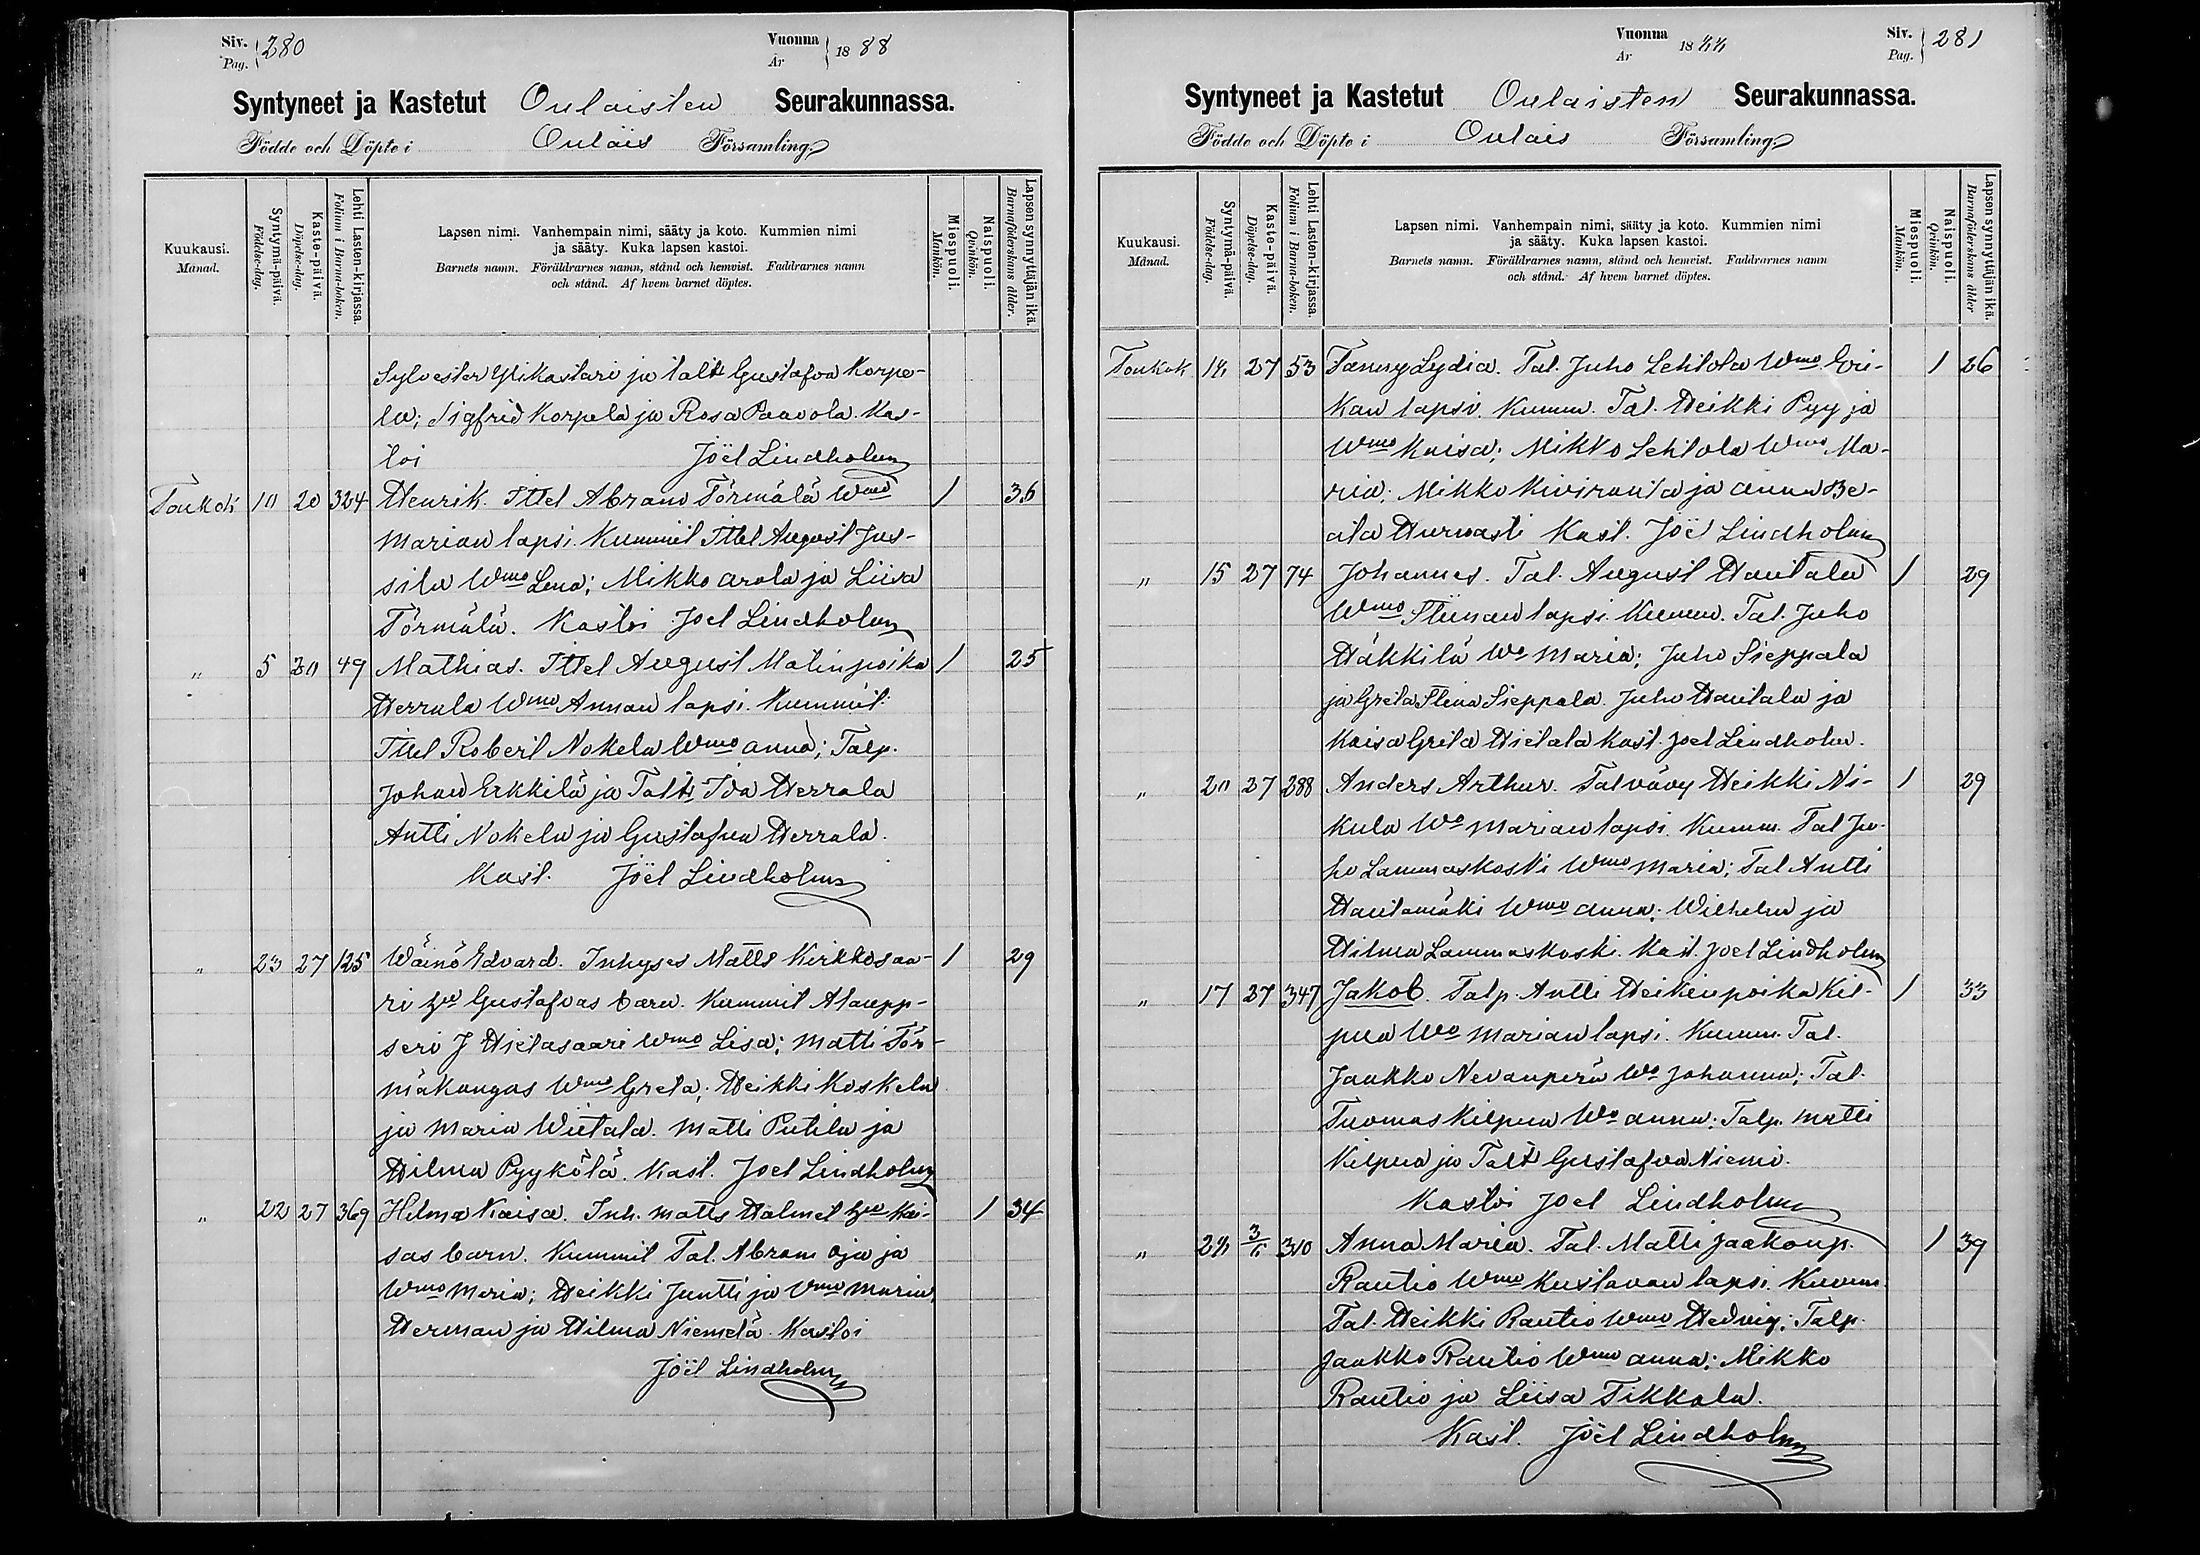 Siv. Pag. 280
Vuonna År 1888
Syntyneet ja Kastetut Oulaisten Seurakunnassa.
Födde och Döpte i Oulais Församling.
Kuukausi. Månad.
Syntymä-päivä. Födelse-dag.
Kaste-päivä. Döpelse-dag.
Lehti Lasten-kirjassa. Folium i Barna-boken.
Lapsen nimi. Vanhempain nimi, sääty ja koto. Kummien nimi
ja sääty. Kuka lapsen kastoi.
Barnets namn. Föräldrarnes namn, stånd och hemvist. Faddrarnes namn
och stånd. Af hvem barnet döptes.
Miespuoli. Mankön.
Naispuoli. Qvinkön.
Lapsen synnyttäjän ikä. Barnaföderskans ålder.
Sylvester Ylikastari ja talt Gustafva Korpe-
la; Sigfrid Korpela ja Rosa Paavola. Kas-
toi Joël Lindholm
Toukok 10 20 324 Henrik. Ittel Abram Törmälä Wmo 1 36
Marian lapsi. Kummit Ittel August Jus-
sila Wmo Lena; Mikko Arola ja Liisa
Törmälä. Kastoi Joel Lindholm
" 5 20 49 Mathias. Ittel August Matinpoika 1 25
Herrala Wmo Annan lapsi. Kummit
Ittel Robert Nokela Wmo Anna; Talp.
Johan Erkkilä ja Talt Ida Herrala
Antti Nokela ja Gustafva Herrala.
Kast. Joël Lindholm
" 23 27 125 Wäinö Edvard. Inhyses Matts Kirkkosaa- 1 29
ri hu Gustafvas barn. Kummit Alaupp-
seri J Hietasaari Wmo Lisa; Matti Tör-
mäkangas Wmo Greta; Heikki Koskela
ja Maria Wiitala. Matti Putila ja
Hilma Pyykölä. Kast. Joel Lindholm
" 22 27 369 Hilma Kaisa. Inh. Matts Halmet hu Kai- 1 34
sas barn. Kummit Tal. Abram Oja ja
Wmo Maria; Heikki Juntti ja Vmo Maria,
Herman ja Hilma Niemelä. Kastoi
Joël Lindholm
Vuonna År 1888
Siv. Pag. 281
Syntyneet ja Kastetut Oulaisten Seurakunnassa.
Födde och Döpte i Oulais Församling.
Kuukausi. Månad.
Syntymä-päivä. Födelse-dag.
Kaste-päivä. Döpelse-dag.
Lehti Lasten-kirjassa. Folium i Barna-boken.
Lapsen nimi. Vanhempain nimi, sääty ja koto. Kummien nimi
ja sääty. Kuka lapsen kastoi.
Barnets namn. Föräldrarnes namn, stånd och hemvist. Faddrarnes namn
och stånd. Af hvem barnet döptes.
Miespuoli. Mankön.
Naispuoli. Qvinkön.
Lapsen synnyttäjän ikä. Barnaföderskans ålder
Toukok 18 27 53 Fanny Lydia. Tal. Juho Lehtola Wmo Eri- 1 26
kan lapsi. Kumm. Tal. Heikki Pyy ja
Wmo Kaisa; Mikko Lehtola Wmo Ma-
ria; Mikko Kiviranta ja Anna Be-
ata Hurnasti Kast. Joël Lindholm
" 15 27 74 Johannes. Tal. August Hautala 1 29
Wmo Stiinan lapsi. Kumm. Tal. Juho
Häkkilä Wo Maria; Juho Sieppala
ja Greta Stina Sieppala. Juho Hautala ja
Kaisa Greta Hietala Kast. Joel Lindholm.
" 20 27 288 Anders Arthur. Talvävy Heikki Ni- 1 29
kula Wo Marian lapsi. Kumm. Tal Ju-
ho Lammaskoski Wmo Maria; Tal Antti
Hautamäki Wmo Anna; Wilhelm ja
Hilma Lammaskoski. Kast. Joel Lindholm
" 17 27 347 Jakob. Talp. Antti Heikinpoika Kil- 1 33
pua Wo Marian lapsi. Kumm. Tal.
Jaakko Nevanperä Wo Johanna; Tal.
Tuomas Kilpua Wo Anna; Talp. Matti
Kilpua ja Talt Gustafva Niemi.
Kastoi Joel Lindholm
" 28 3/6 310 Anna Maria. Tal. Matti Jaakonp. 1 39
Rautio Wmo Kustavan lapsi. Kumm.
Tal. Heikki Rautio Wmo Hedvig; Talp.
Jaakko Rautio Wmo Anna; Mikko
Rautio ja Liisa Tikkala.
Kast. Joël Lindholm